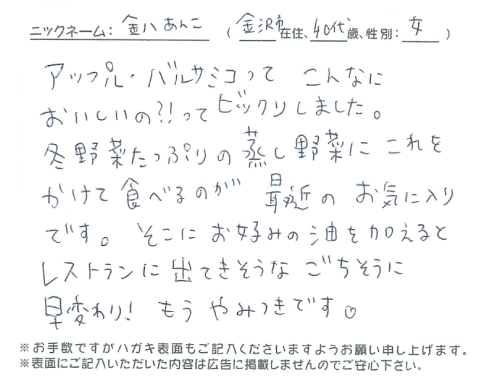 ニックネーム: 金八あんこ （金沢市在住、40代歳、性別: 女）
アップル・バルサミコって こんなに
おいしいの?!ってビックリしました。
冬野菜たっぷりの蒸し野菜に これを
かけて食べるのが 最近の お気に入り
です。そこに お好みの油を加えると
レストランに出てきそうな ごちそうに
早変わり! もう やみつきです。
※お手数ですがハガキ表面もご記入くださいますようお願い申し上げます。
※表面にご記入いただいた内容は広告に掲載しませんのでご安心下さい。